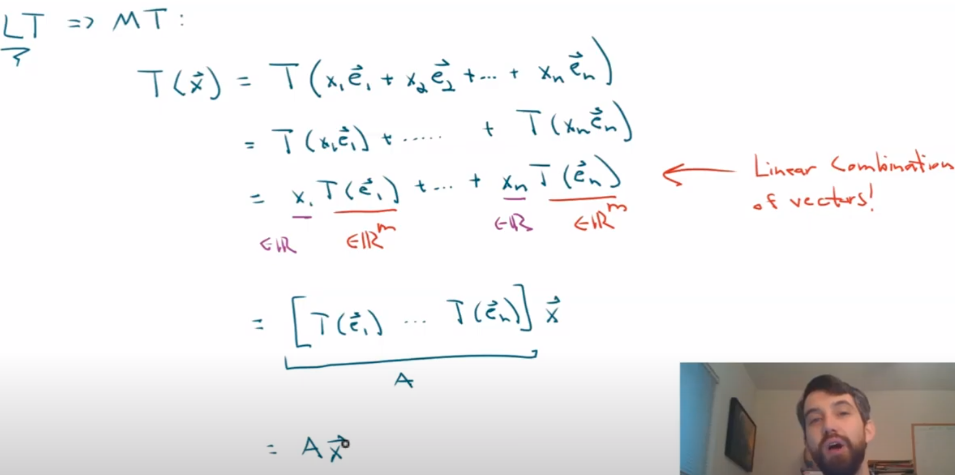 LT => MT:
T(x⃗) = T(x₁e⃗₁ + x₂e⃗₂ + ... + xₙe⃗ₙ)
= T(x₁e⃗₁) + ..... + T(xₙe⃗ₙ)
= x₁T(e⃗₁) + ... + xₙT(e⃗ₙ) ← Linear Combination
of vectors!
∈ℝ ∈ℝᵐ ∈ℝ ∈ℝᵐ
= [T(e⃗₁) ... T(e⃗ₙ)] x⃗
A
= Ax⃗